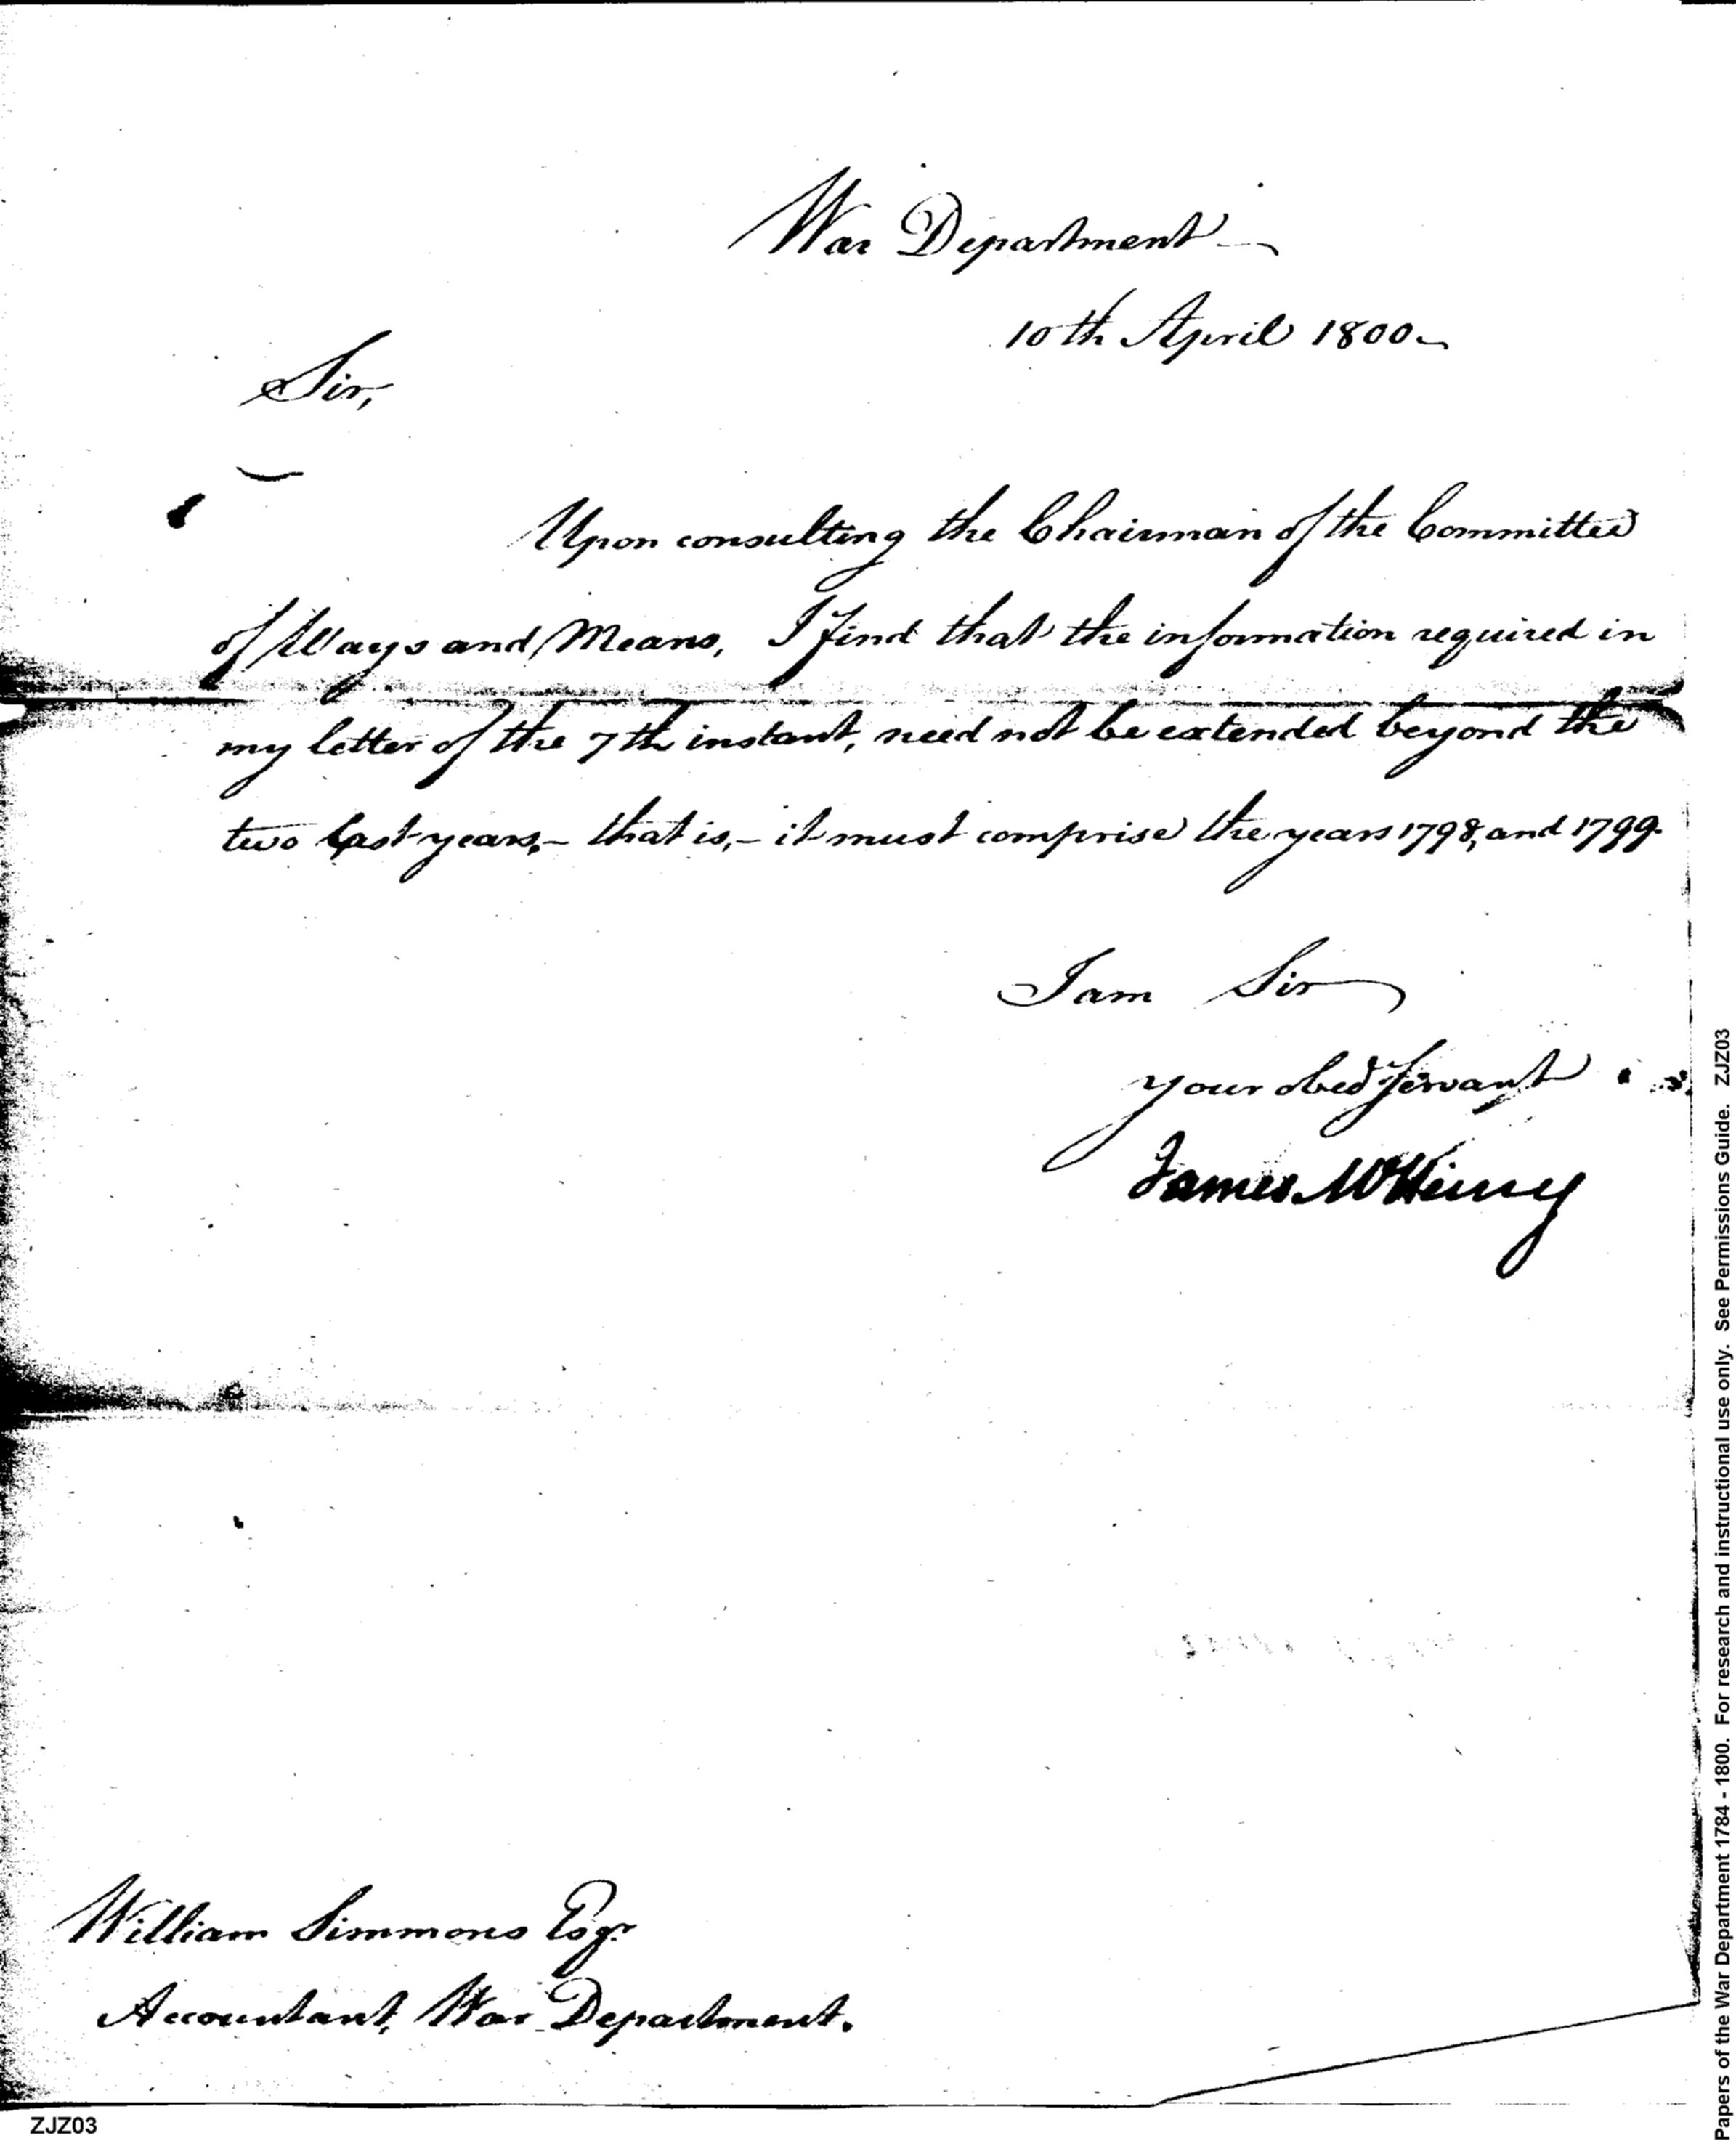 War Department
10th April 1800
Sir,
Upon consulting the Chairman of the Committee
of Ways and Means, I find that the information required in
my letter of the 7th instant, need not be extended beyond the
two last years,– that is,– it must comprise the years 1798, and 1799.
I am Sir
your obed servant
James McHenry
William Simmons Esqr.
Accountant, War Department.
ZJZ03
Papers of the War Department 1784 - 1800. For research and instructional use only. See Permissions Guide. ZJZ03